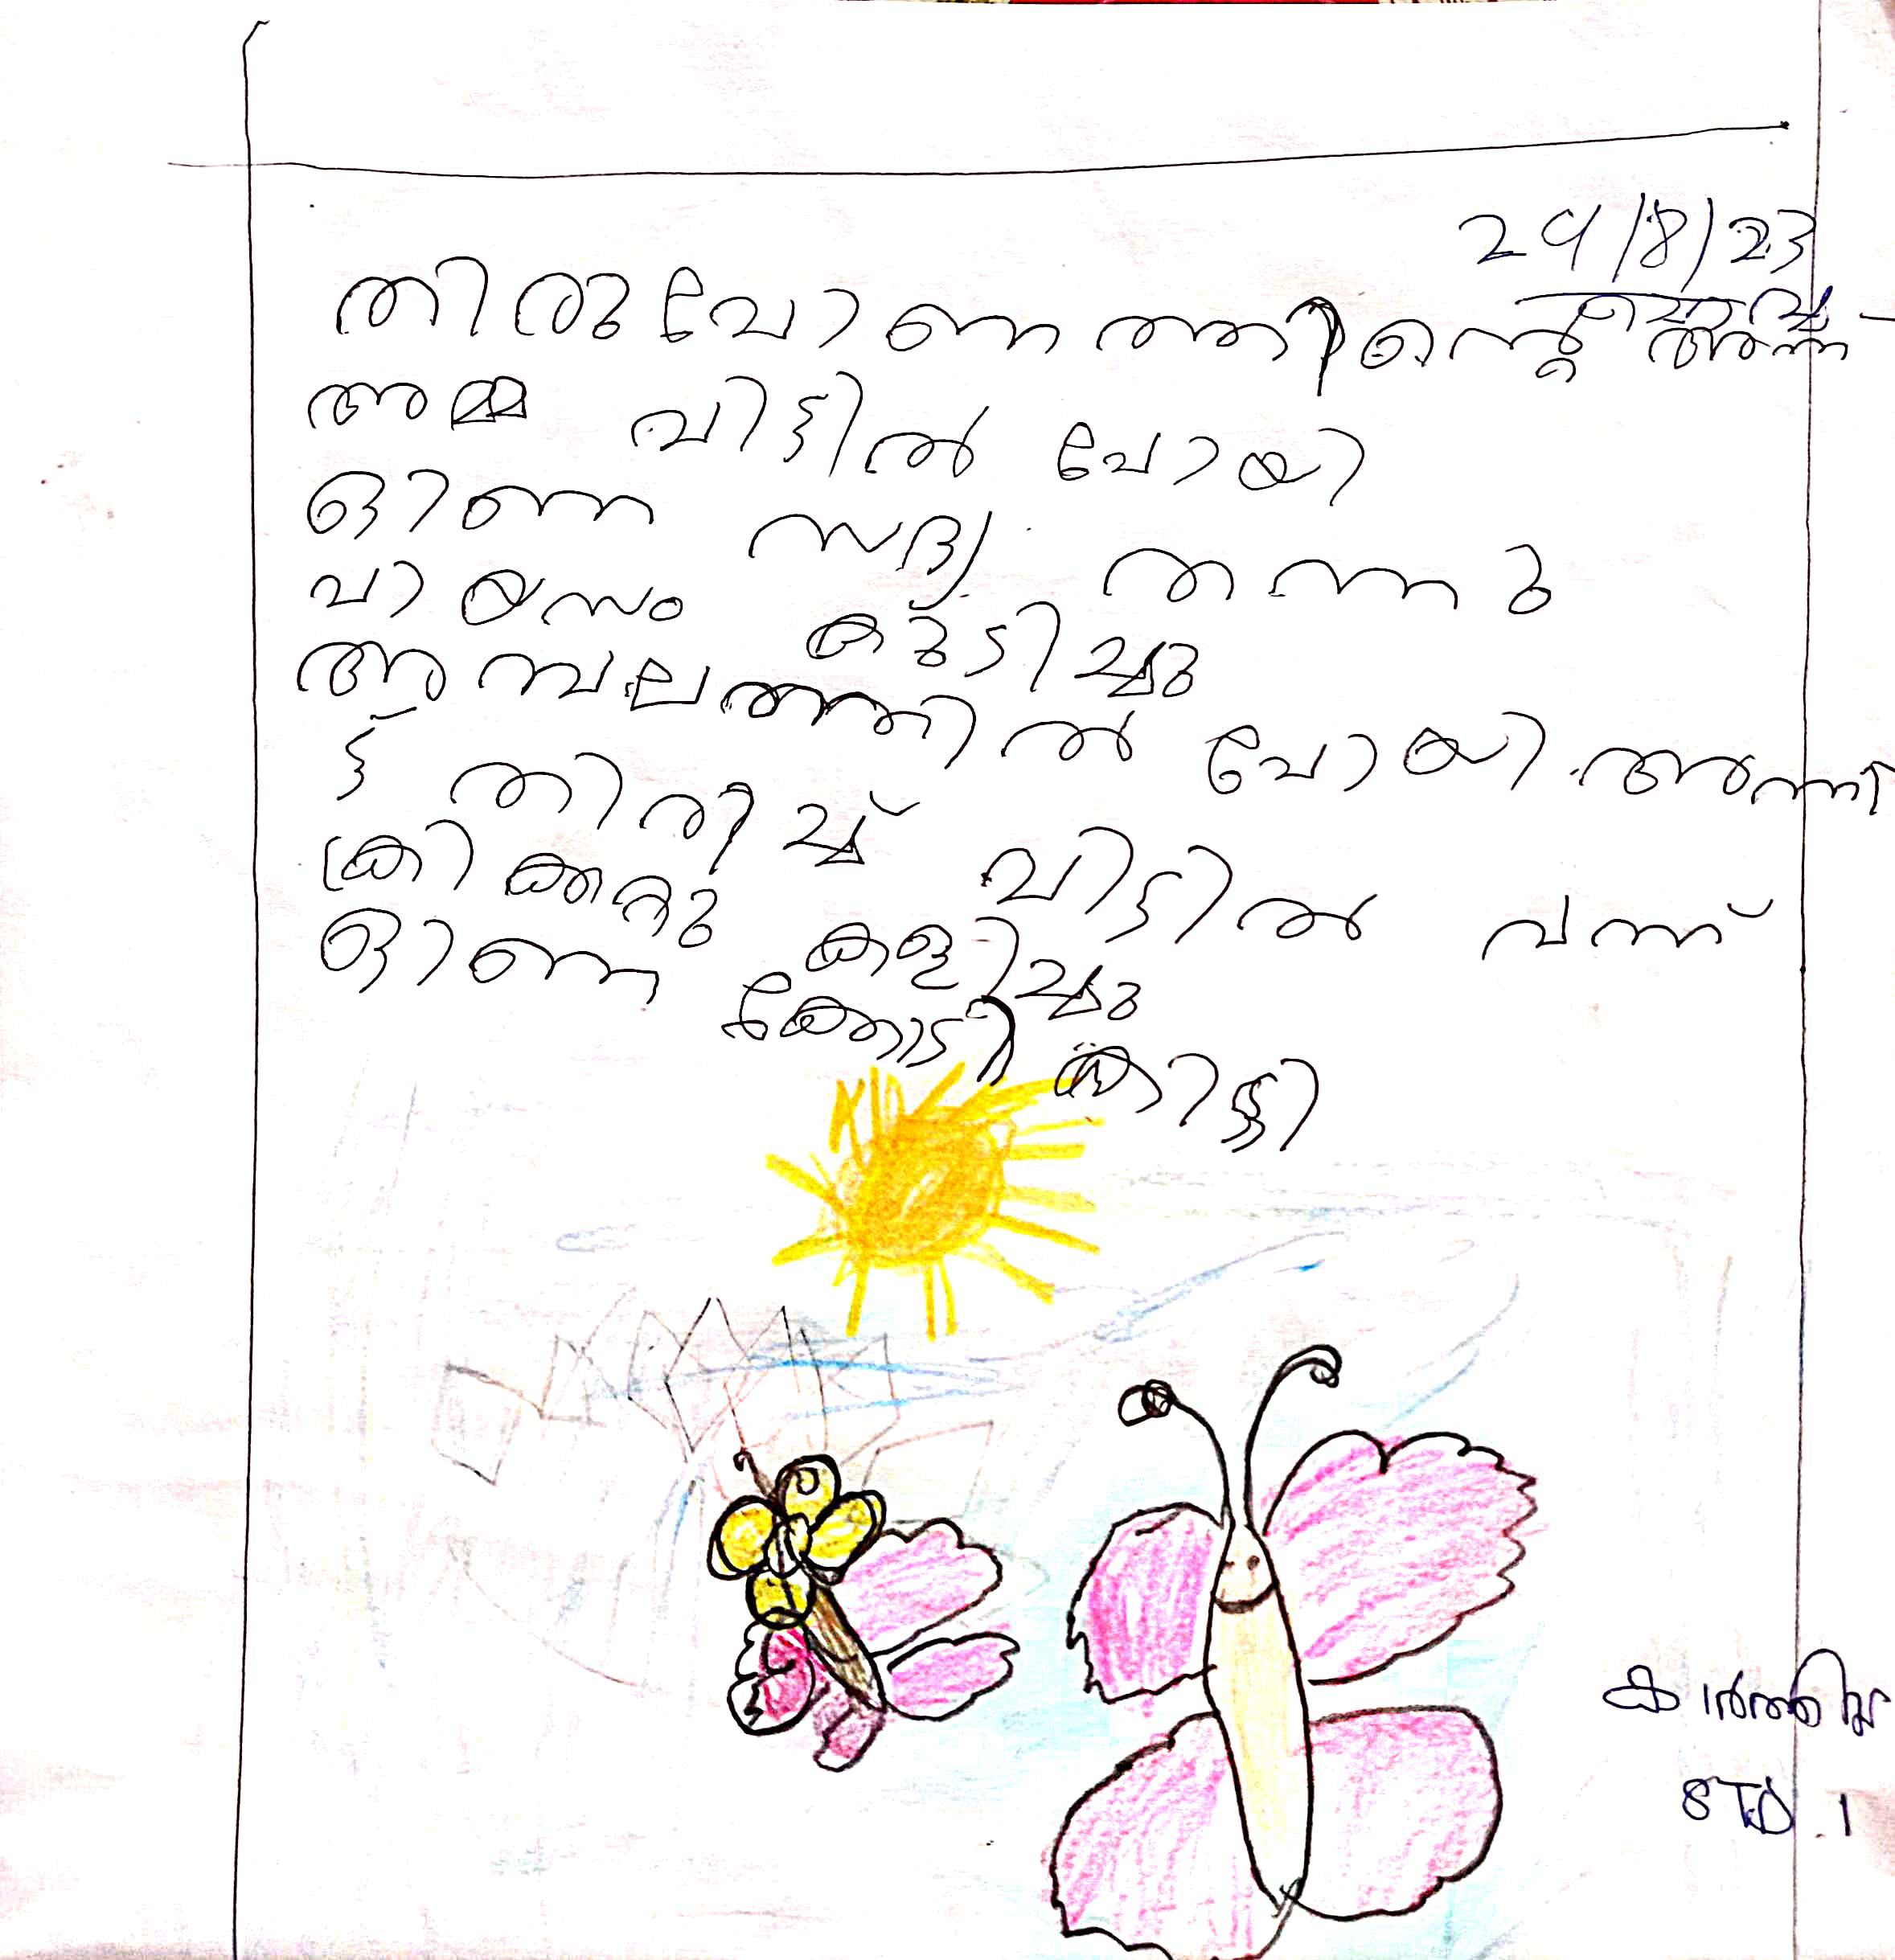 29/8/23
ചൊവ്വ
തിരുവോണത്തിന്റെ അന്ന
അമ്മ വിട്ടിൽ പോയി
ഓണ സദ്യ തന്നു
പായസം കുടിച്ചു
അമ്പലത്തിൽ പോയി. അന്നി
ട്ട് തിരിച്ച് വിട്ടിൽ വന്ന്
ക്രിക്കറ്റു കളിച്ചു
ഓണ ക്കോടി കിട്ടി
കാർത്തിക
STD. 1